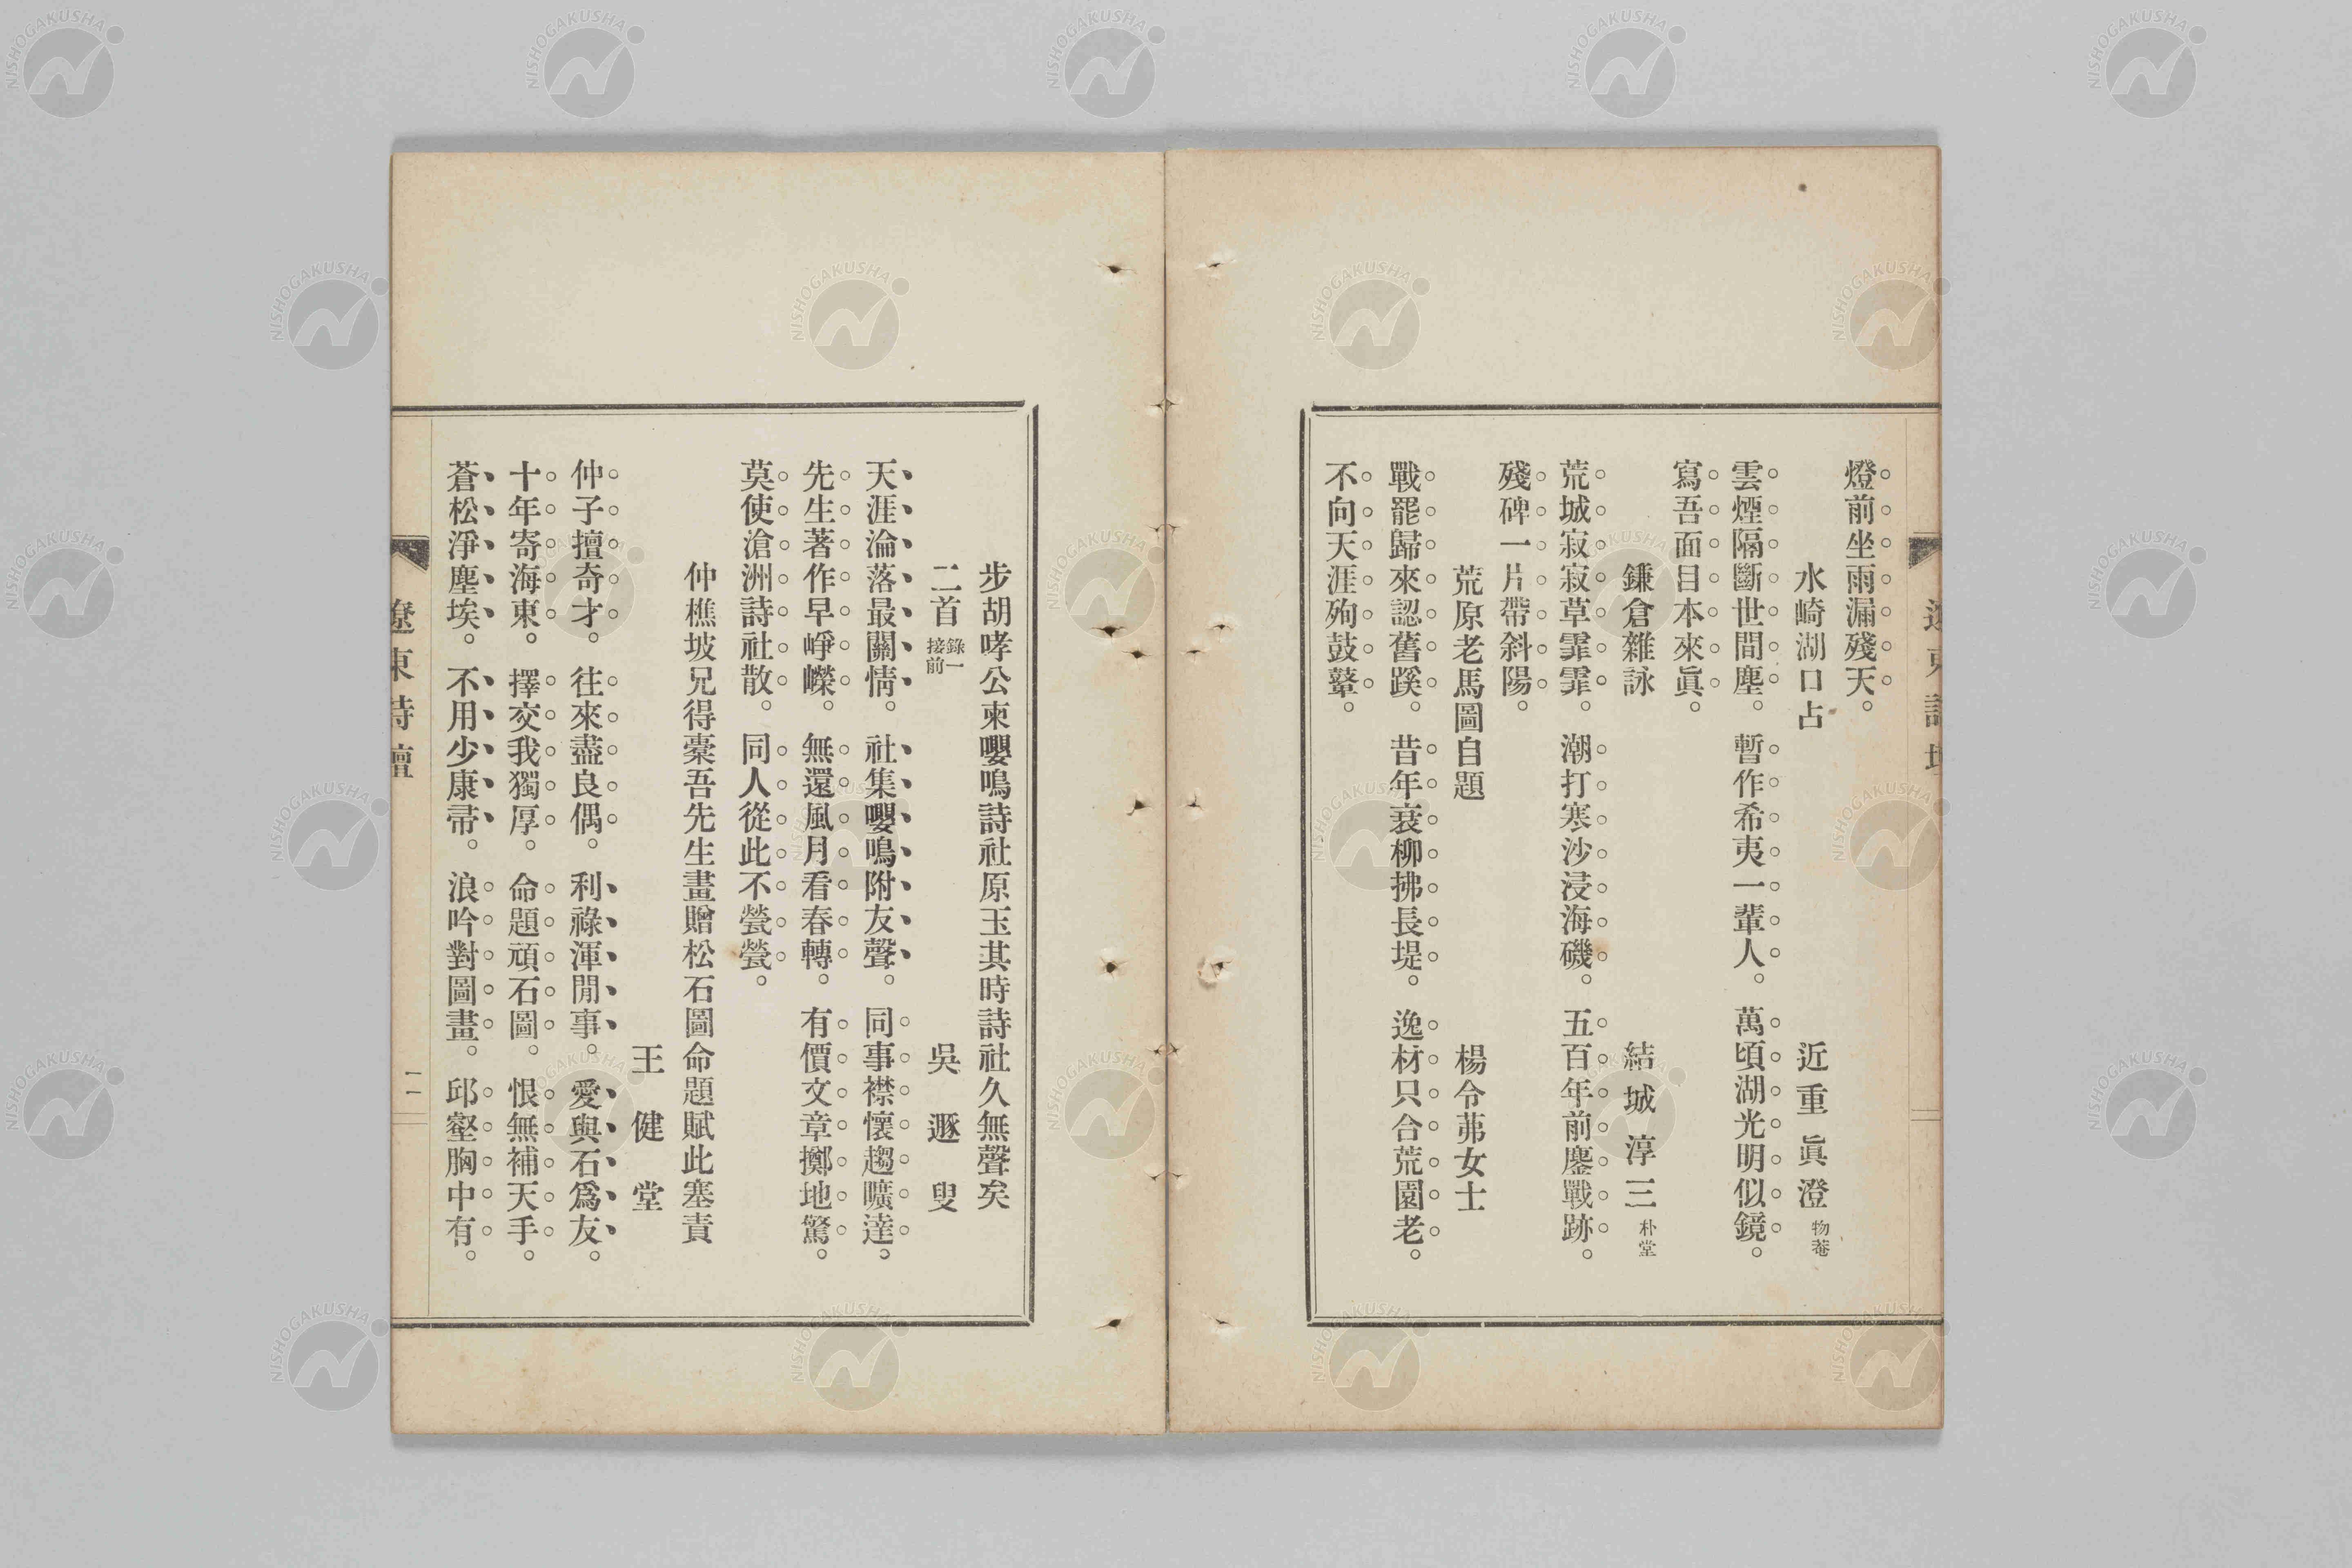 燈前坐雨漏殘天。
水崎湖口占　近重眞澄 物菴
雲煙隔斷世間塵。暫作希夷一輩人。萬頃湖光明似鏡。
寫吾面目本來眞。
鎌倉雜詠　結城淳三 朴堂
荒城寂寂草霏霏。潮打寒沙浸海磯。五百年前鏖戰跡。
殘碑一片帶斜陽。
荒原老馬圖自題　楊令茀女士
戰罷歸來認舊蹊。昔年衰柳拂長堤。逸材只合荒園老。
不向天涯殉鼓鼙。
步胡哮公柬嚶鳴詩社原玉其時詩社久無聲矣
二首 錄一接前　吳遯叟
天涯淪落最關情。社集嚶鳴附友聲。同事襟懷趨曠達。
先生著作早崢嶸。無還風月看春轉。有價文章擲地驚。
莫使滄洲詩社散。同人從此不煢煢。
仲樵坡兄得橐吾先生畫贈松石圖命題賦此塞責
王健堂
仲子擅奇才。往來盡良偶。利祿渾閒事。愛與石爲友。
十年寄海東。擇交我獨厚。命題頑石圖。恨無補天手。
蒼松淨塵埃。不用少康帚。浪吟對圖畫。邱壑胸中有。
遼東詩壇
一一
NISHOGAKUSHA